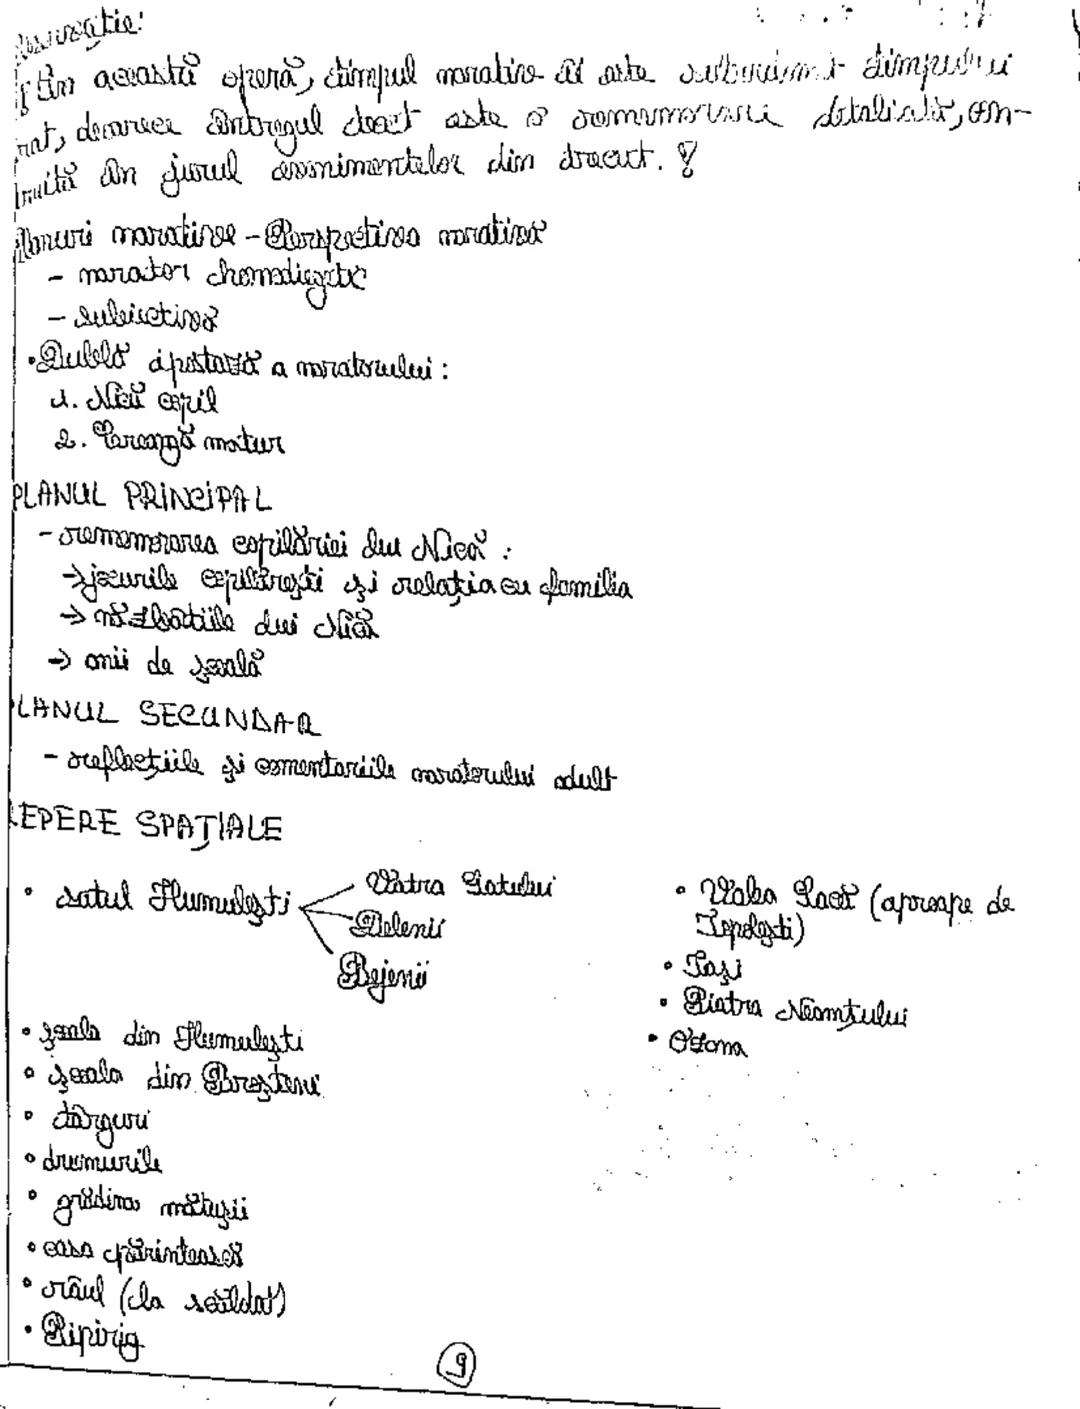 Observație:
În această operă, timpul narativ îi este subordonat timpului
narat, deoarece întregul text este o rememorare detaliată, con-
struită în jurul evenimentelor din trecut. !
Planuri narative - Perspectiva narativă
- narator homodiegetic
- subiectivă
• Dublă ipostază a naratorului:
1. Nică copil
2. Creangă matur
PLANUL PRINCIPAL
- rememorarea copilăriei lui Nică:
→ jocurile copilărești și relația cu familia
→ năzbâtiile lui Nică
→ anii de școală
PLANUL SECUNDAR
- reflecțiile și comentariile naratorului adult
REPERE SPAȚIALE
• satul Humulești
Vatra Satului
Delenii
Bejenii
• școala din Humulești
• școala din Broșteni
• târguri
• drumurile
• grădina mătușii
• casa părintească
• râul (la scăldat)
• Pipirig
• Valea Seacă (aproape de
Topolești)
• Iași
• Piatra Neamțului
• Ozana
9